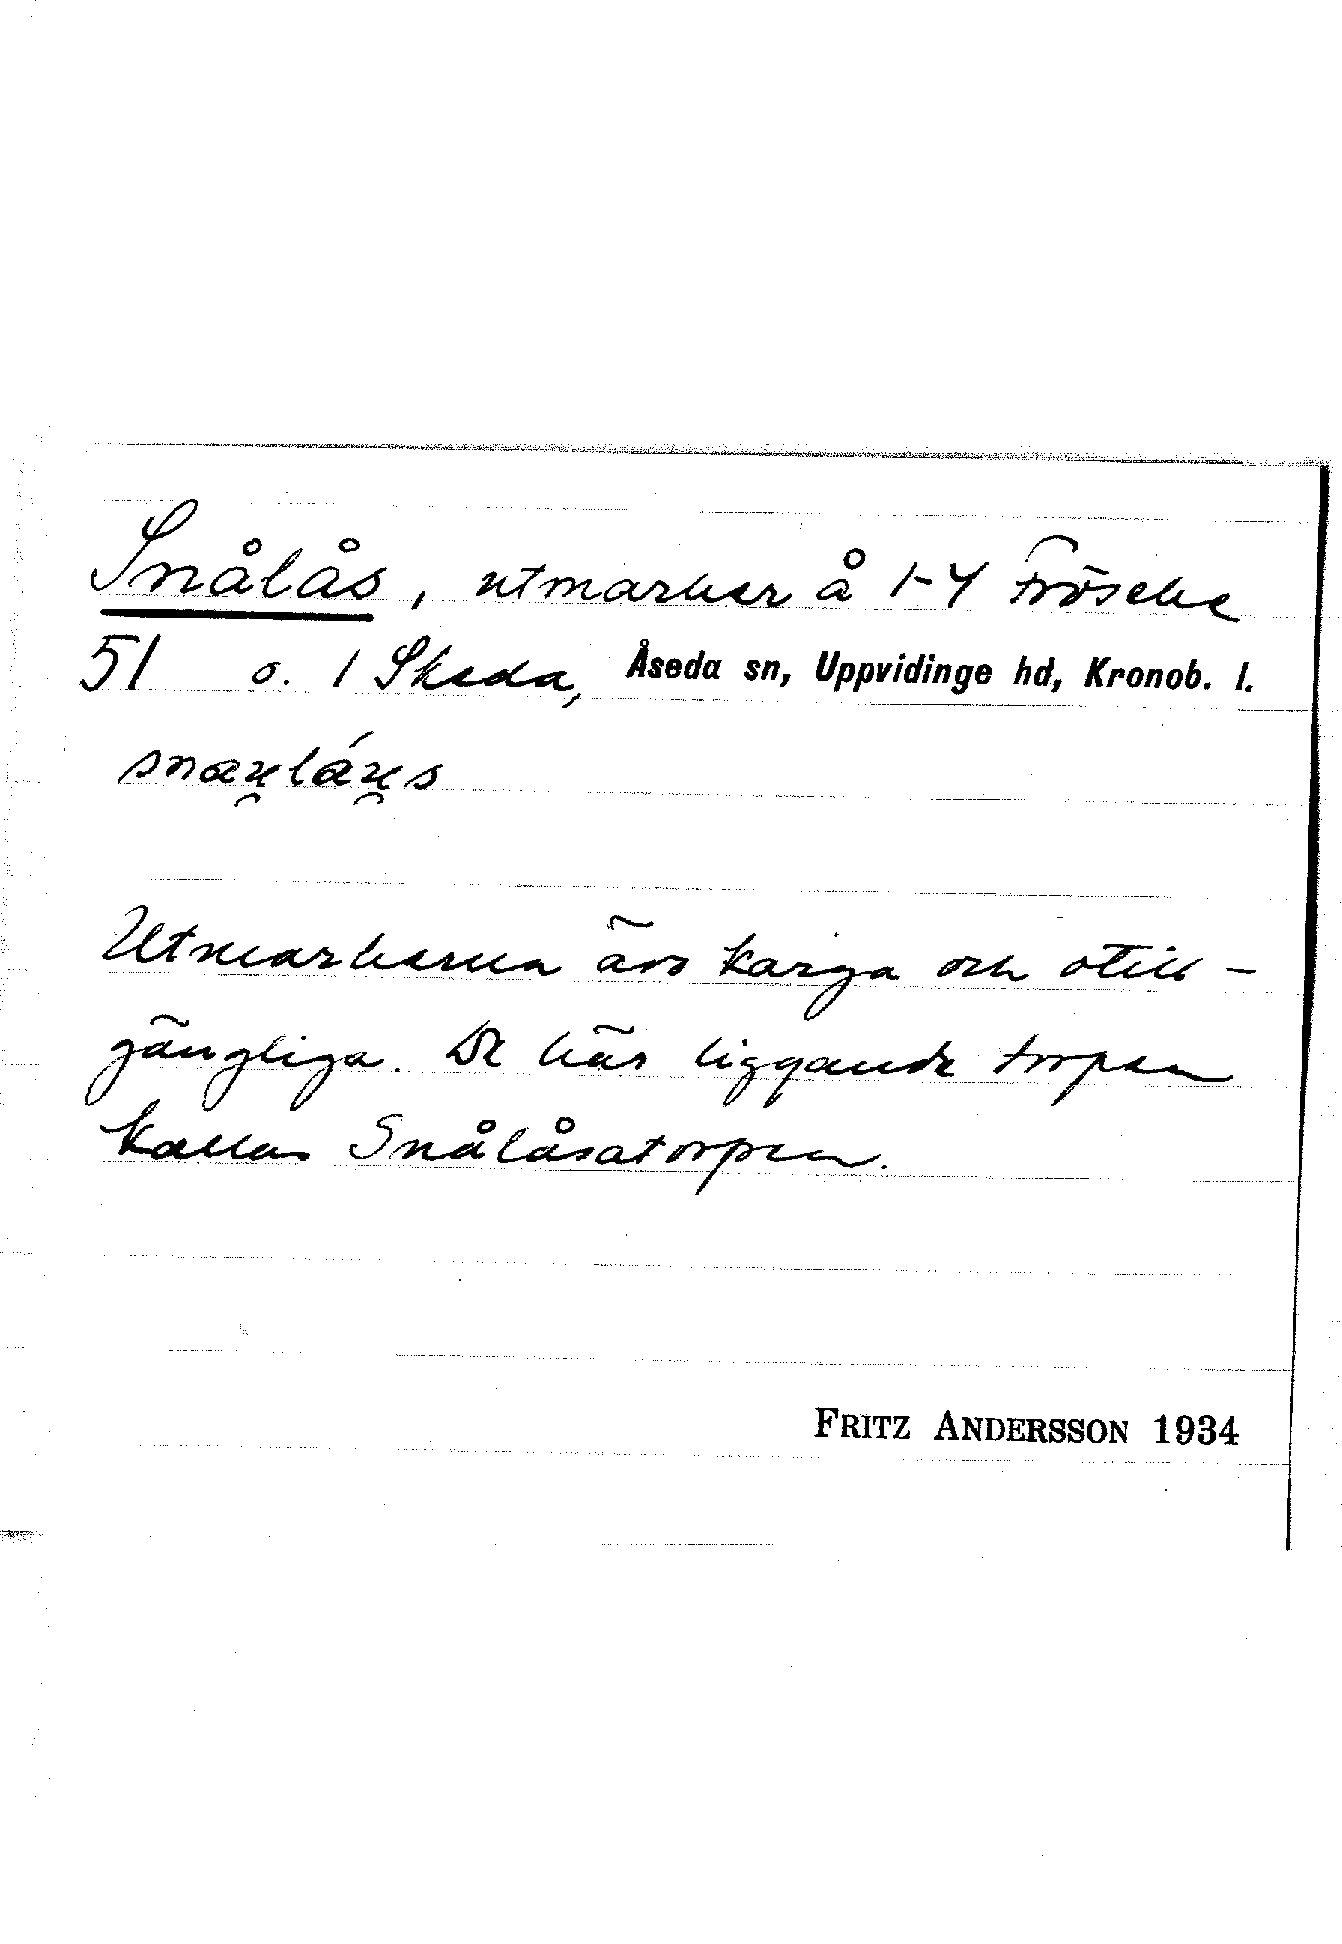 Snålås, utmarker å 1-4 Fröseke
51 o. 1 Skeda, Åseda sn, Uppvidinge hd, Kronob. l.
Utmarkerna äro karga och otill-
gängliga. De här liggande torpen
kallas Snålåsatorpen.
FRITZ ANDERSSON 1934